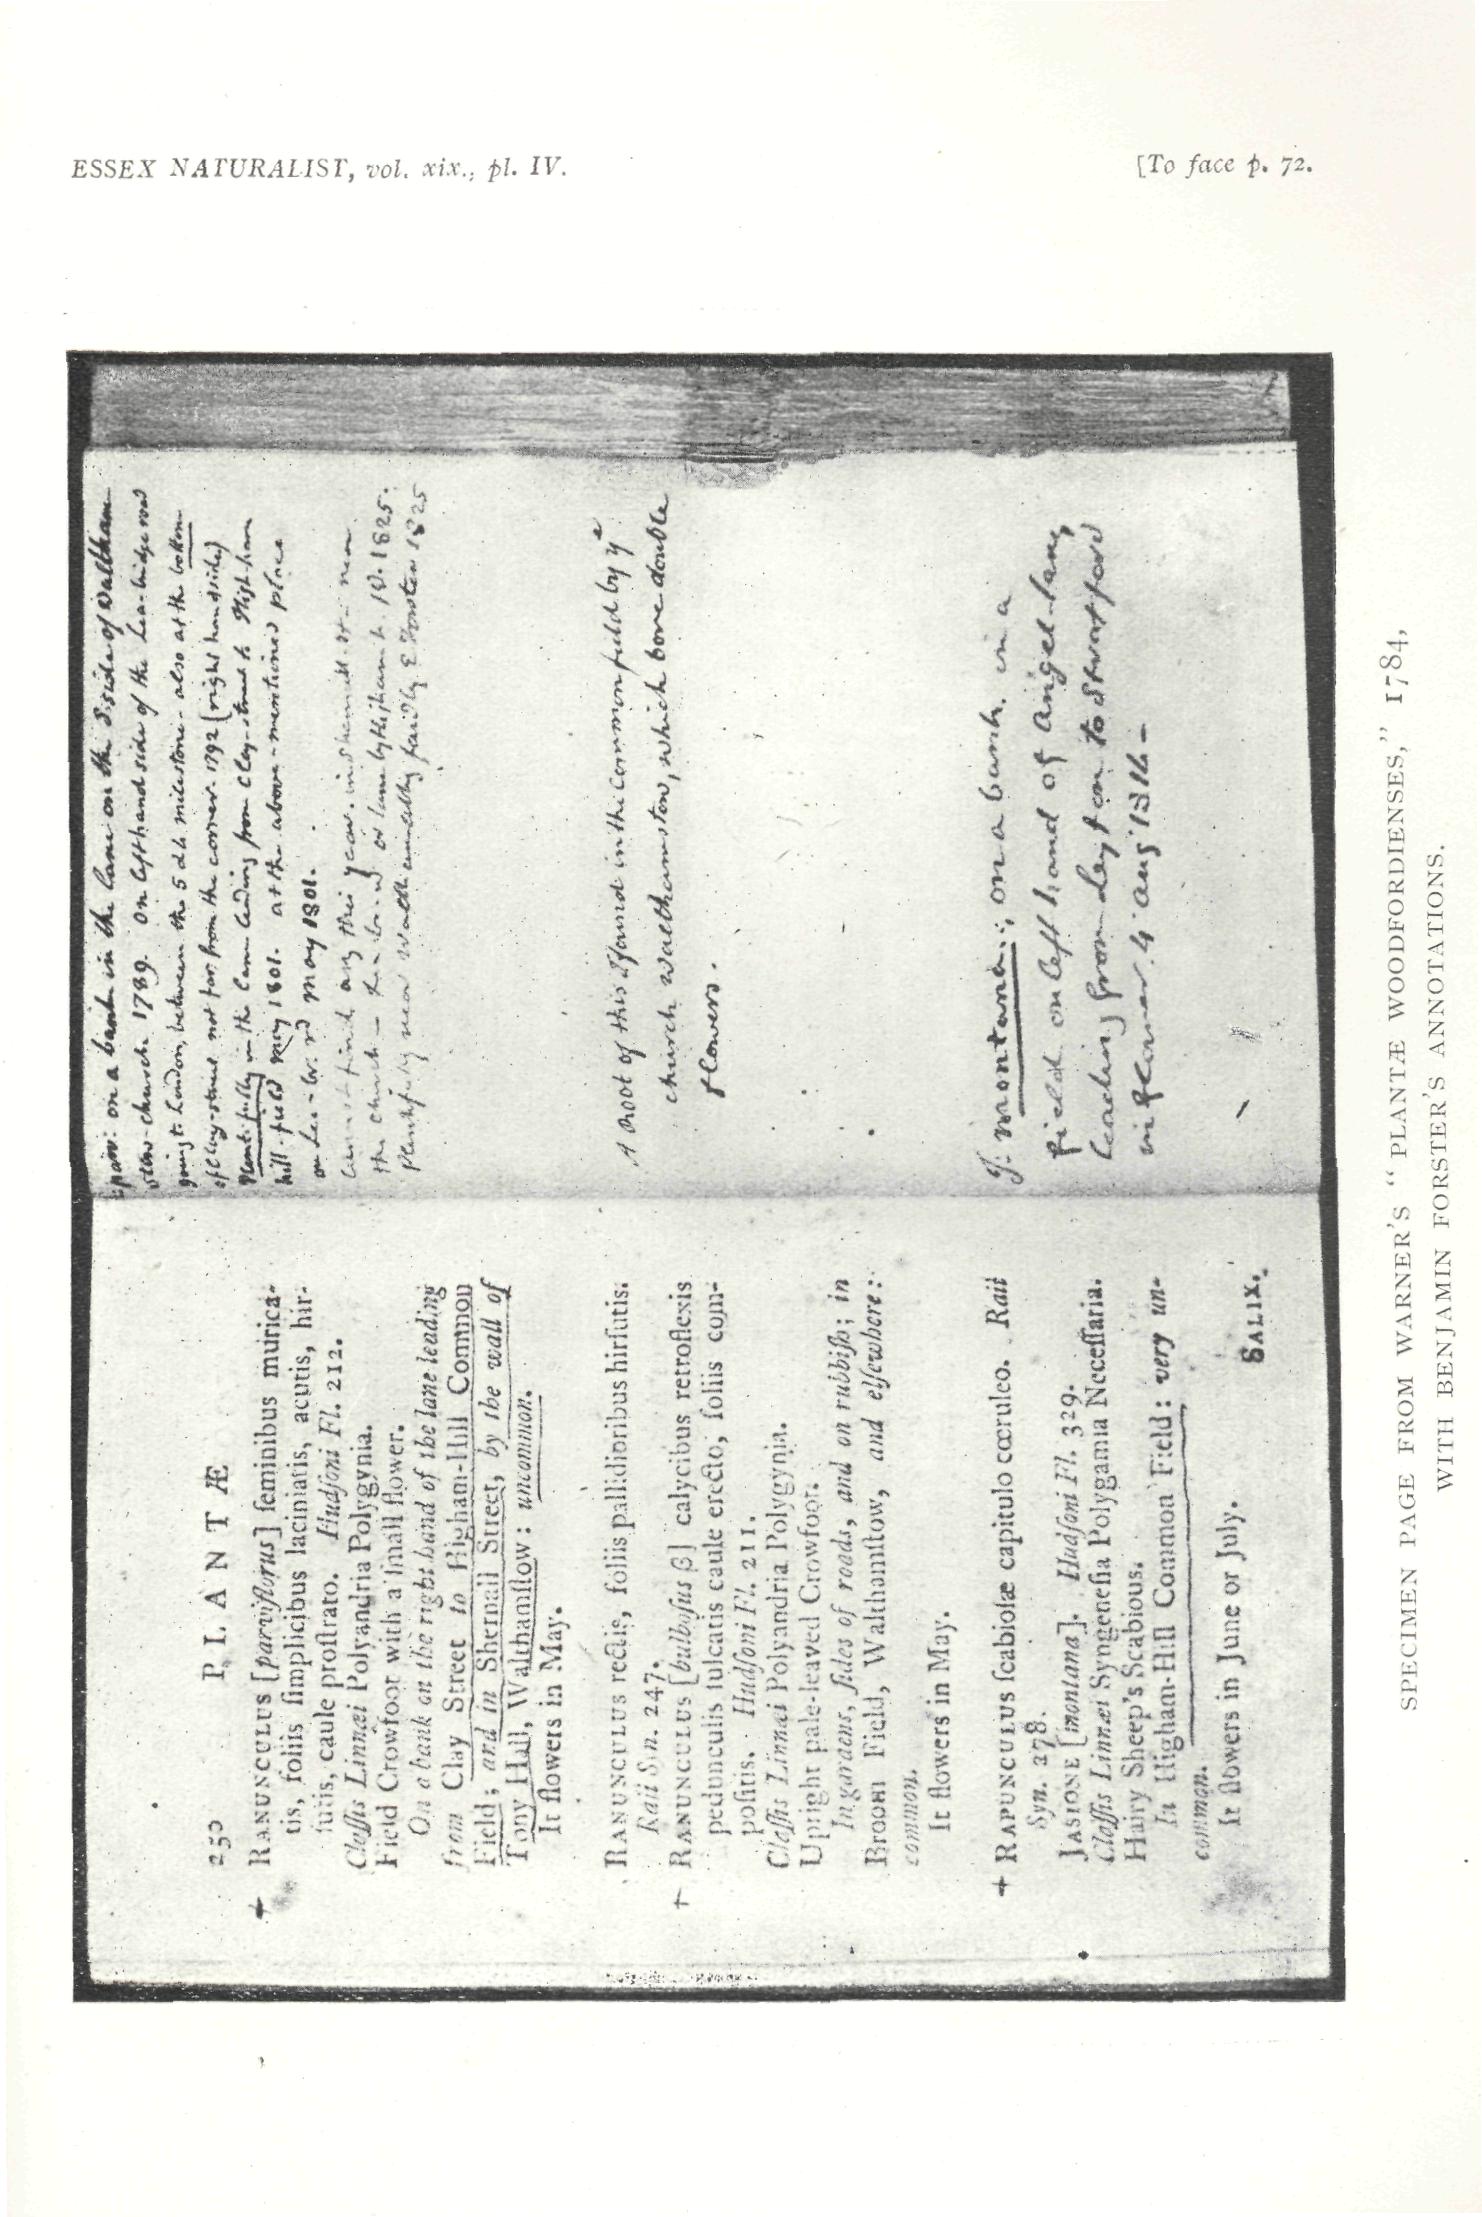 ESSEX NATURALIST, vol. xix., pl. IV.
[To face p. 72.
250 PLANTÆ
+ RANUNCULUS [parviflorus] ſeminibus murica-
tis, foliis ſimplicibus laciniatis, acutis, hir-
ſutis, caule proſtrato. Hudſoni Fl. 212.
Claſſis Linnæi Polyandria Polygynia.
Field Crowfoot with a ſmall flower.
On a bank on the right hand of the lane leading
from Clay Street to Higham-Hill Common
Field; and in Shernall Street, by the wall of
Tony Hall, Walthamſtow: uncommon.
It flowers in May.
RANUNCULUS rectis, foliis pallidioribus hirſutis.
Raii Syn. 247.
+ RANUNCULUS [bulboſus β] calycibus retroflexis
pedunculis ſulcatis caule erecto, foliis com-
poſitis. Hudſoni Fl. 211.
Claſſis Linnæi Polyandria Polygynia.
Upright pale-leaved Crowfoot.
In gardens, ſides of roads, and on rubbiſh; in
BROOM Field, Walthamſtow, and elſewhere:
common.
It flowers in May.
+ RAPUNCULUS ſcabioſæ capitulo cœruleo. Raii
Syn. 278.
JASIONE [montana]. Hudſoni Fl. 329.
Claſſis Linnæi Syngeneſia Polygamia Neceſſaria.
Hairy Sheep's Scabious.
In Higham-Hill Common Field: very un-
common.
It flowers in June or July.
SALIX.
on a bank in the lane on the S. side of Waltham
stow-church 1789. on left hand side of the Lea-bridge road
going to London, between the 5 milestone - also at the bottom
of Clay-street not far from the corner 1792 [right hand side]
plentifully in the lane leading from Clay-street to Higham
hill-field May 1801. at the above-mentioned place
May 1801.
any this year in near
the church - lane by Higham h. 10. 1825.
plentifully near E Forster 1825
A root of this I found in the Common field by ye
church Walthamstow, which bore double
flowers.
J. montana; on a bank in a
field on left hand of Angel-lane,
leading from Leyton to Stratford
in flower 4 aug
SPECIMEN PAGE FROM WARNER'S "PLANTÆ WOODFORDIENSES," 1784,
WITH BENJAMIN FORSTER'S ANNOTATIONS.